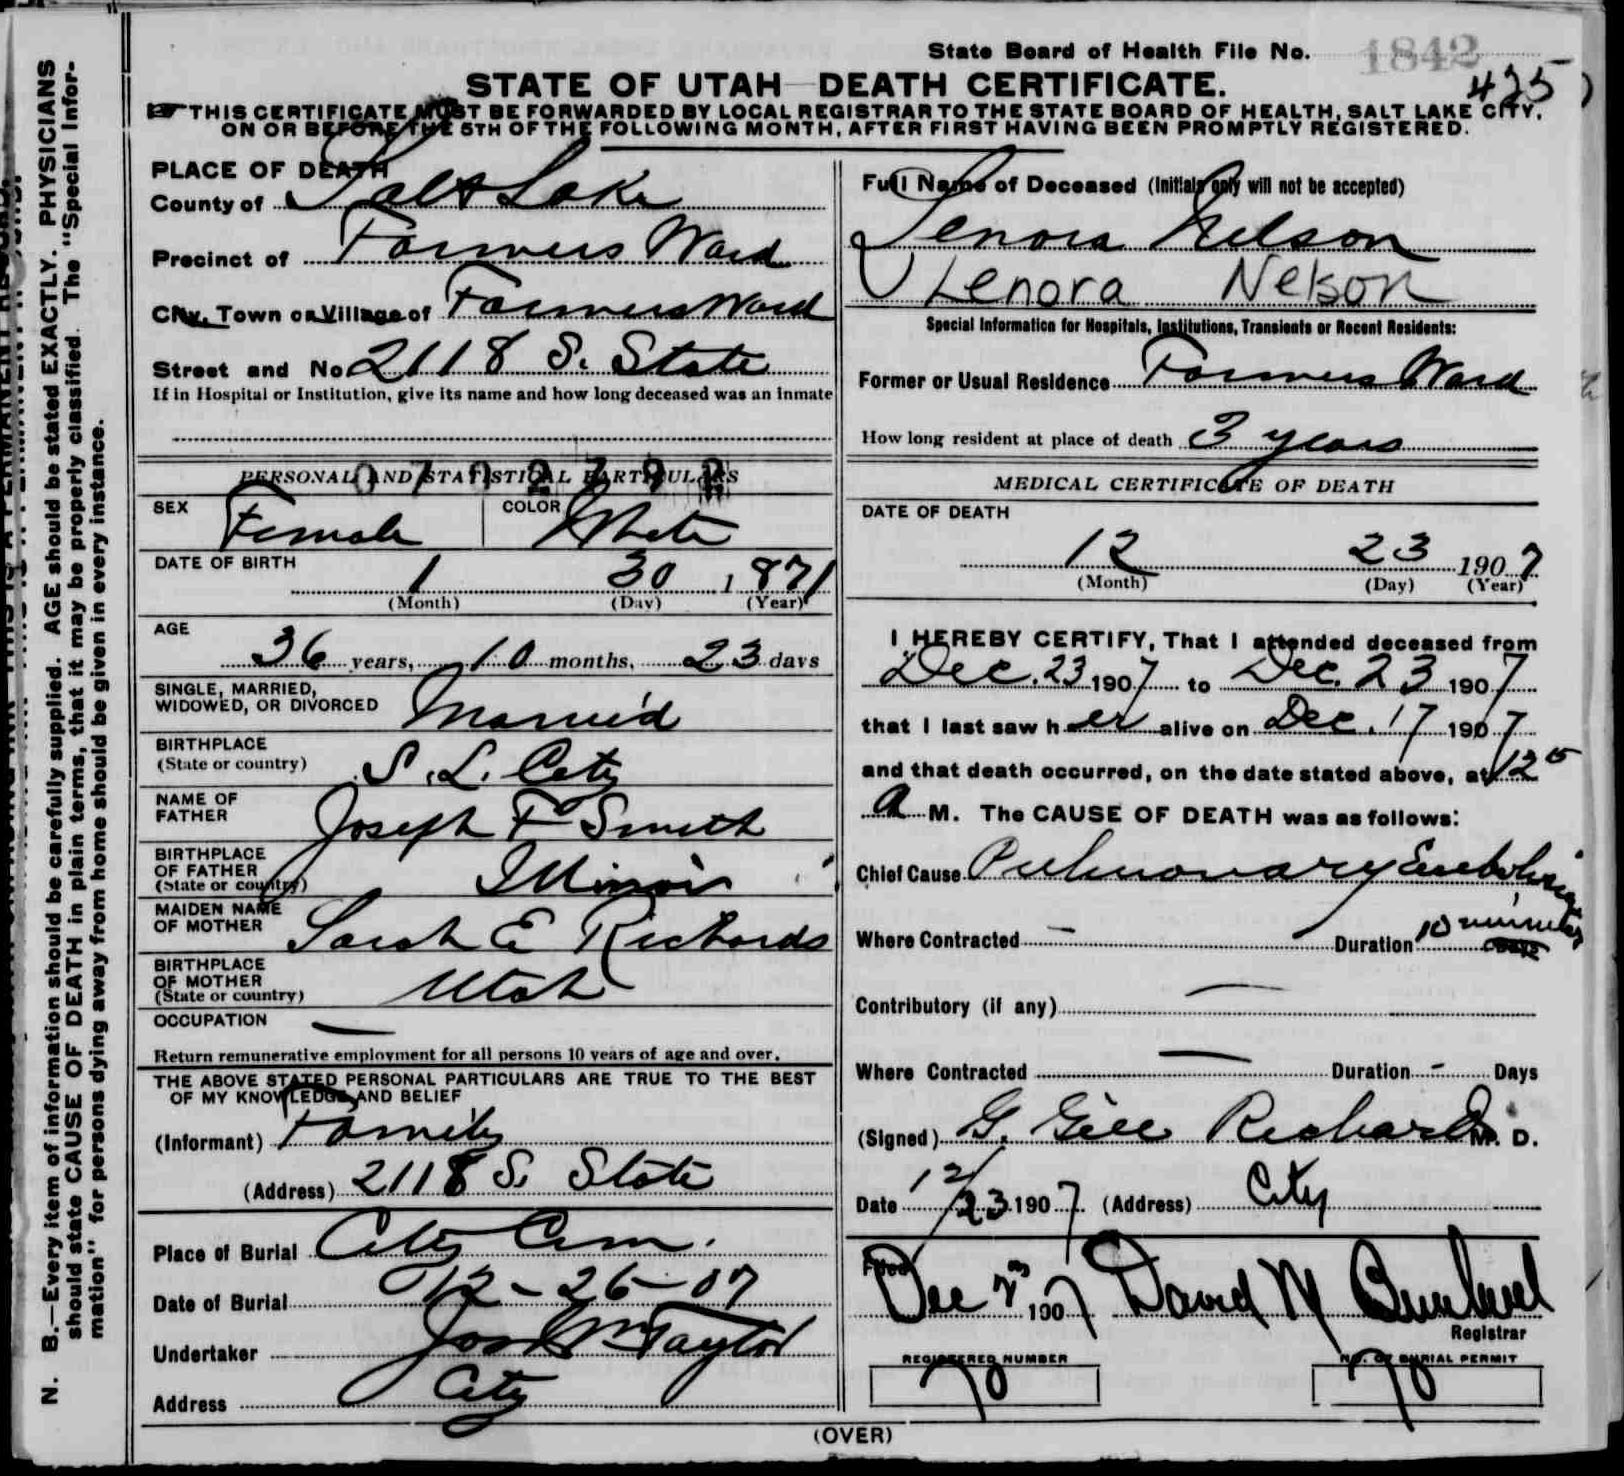 State Board of Health File No. 1842
STATE OF UTAH DEATH CERTIFICATE. 425
THIS CERTIFICATE MUST BE FORWARDED BY LOCAL REGISTRAR TO THE STATE BOARD OF HEALTH, SALT LAKE CITY,
ON OR BEFORE THE 5TH OF THE FOLLOWING MONTH, AFTER FIRST HAVING BEEN PROMPTLY REGISTERED.
N. B.—Every item of information should be carefully supplied. AGE should be stated EXACTLY. PHYSICIANS
should state CAUSE OF DEATH in plain terms, that it may be properly classified. The "Special Infor-
mation" for persons dying away from home should be given in every instance.
PLACE OF DEATH
County of Salt Lake
Precinct of Farmers Ward
City, Town or Village of Farmers Ward
Street and No. 2118 S. State
If in Hospital or Institution, give its name and how long deceased was an inmate
PERSONAL AND STATISTICAL PARTICULARS
SEX Female COLOR White
DATE OF BIRTH
1 30 1871
(Month) (Day) (Year)
AGE
36 years, 10 months, 23 days
SINGLE, MARRIED,
WIDOWED, OR DIVORCED Married
BIRTHPLACE
(State or country) S. L. City
NAME OF
FATHER Joseph F Smith
BIRTHPLACE
OF FATHER
(State or country) Illinois
MAIDEN NAME
OF MOTHER Sarah E Richards
BIRTHPLACE
OF MOTHER
(State or country) Utah
OCCUPATION —
Return remunerative employment for all persons 10 years of age and over.
THE ABOVE STATED PERSONAL PARTICULARS ARE TRUE TO THE BEST
OF MY KNOWLEDGE AND BELIEF
(Informant) Family
(Address) 2118 S. State
Place of Burial City Cem.
Date of Burial 12-26-07
Undertaker Jos Wm Taylor
Address City
Full Name of Deceased (Initials only will not be accepted)
Lenora Nelson
Lenora Nelson
Special Information for Hospitals, Institutions, Transients or Recent Residents:
Former or Usual Residence Farmers Ward
How long resident at place of death 3 years
MEDICAL CERTIFICATE OF DEATH
DATE OF DEATH
12 23 1907
(Month) (Day) (Year)
I HEREBY CERTIFY, That I attended deceased from
Dec. 23 1907 to Dec. 23 1907
that I last saw her alive on Dec. 17 1907
and that death occurred, on the date stated above, at 12 05
a M. The CAUSE OF DEATH was as follows:
Chief Cause Pulmonary Embolism
Where Contracted — Duration 10 minutes
Contributory (if any) —
Where Contracted — Duration - Days
(Signed) G. Gill Richards M. D.
Date 12/23 1907 (Address) City
Filed Dec 23 1907 David M
Registrar
REGISTERED NUMBER NO. OF BURIAL PERMIT
70 70
(OVER)